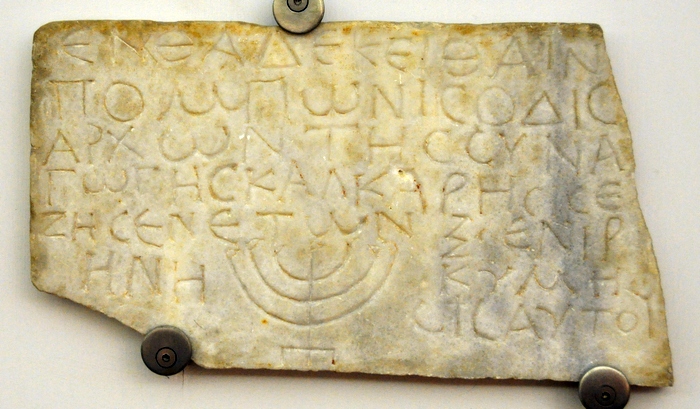 ΕΝΘΑΔΕΚΕΙΘΑΙΝ
ΠΟΜΠΩΝΙϹΟΔΙϹ
ΑΡΧΩΝΤΗϹϹΥΝΑ
ΓΩΓΗϹΚΑΛΚΑΡΗϹϹΕ
ΖΗϹΕΝΕΤΩΝ Ξ ΕΝΙΡ
ΗΝΗ ΚΥΜΗ
ϹΙϹΑΥΤΟΥ